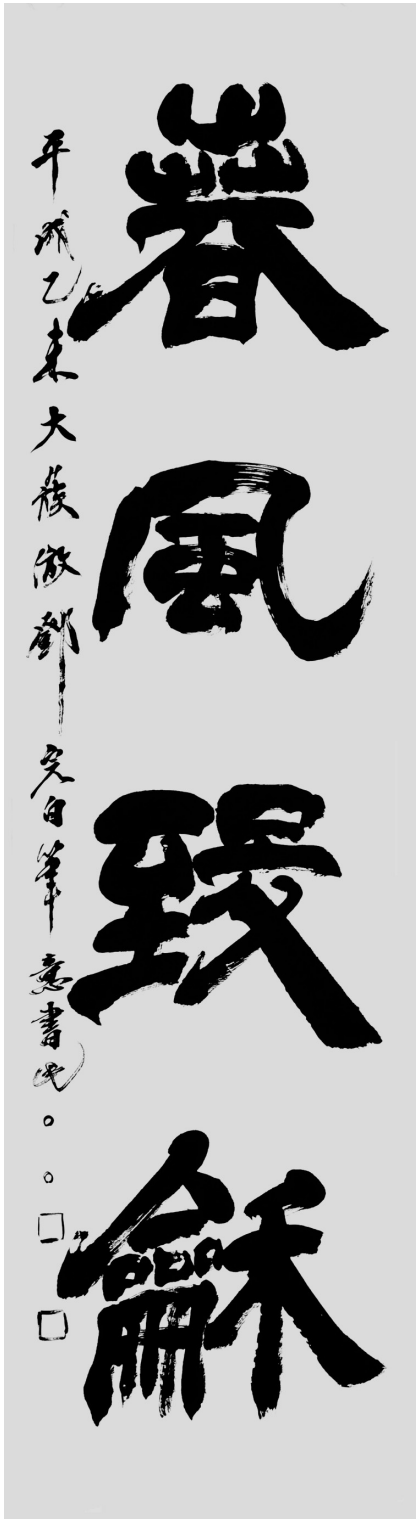 春風致龢
平成乙未大蔟倣鄧完白筆意書也○○□□